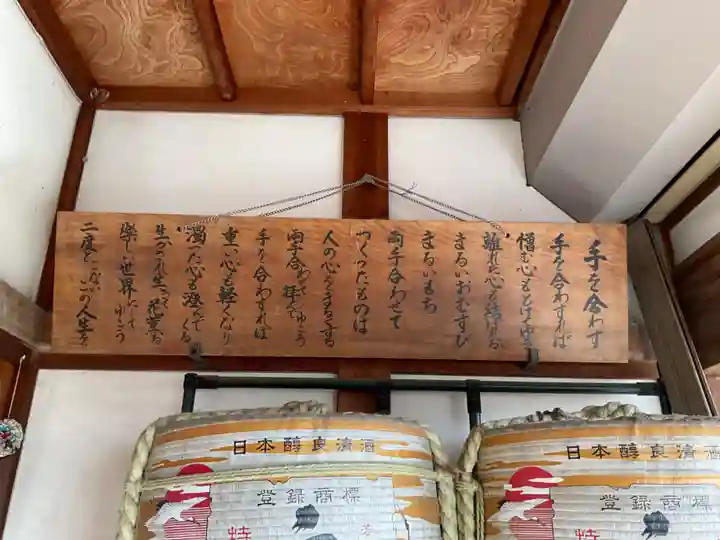 手を合わす
手を合わすれば
憎む心もとけ
離れた心も結ばる
まるいおむすび
まるいもち
両手合わせて
つくったものは
人の心をまるくする
両手合わせ 拝んでゆこう
手を合わすれば
重い心も軽くなり
濁った心も澄んでくる
生かされ生
楽しい世界にしてゆこう
二度とないこの人生を
日本醇良清酒
登録商標
特
日本醇良清酒
登録商標
特